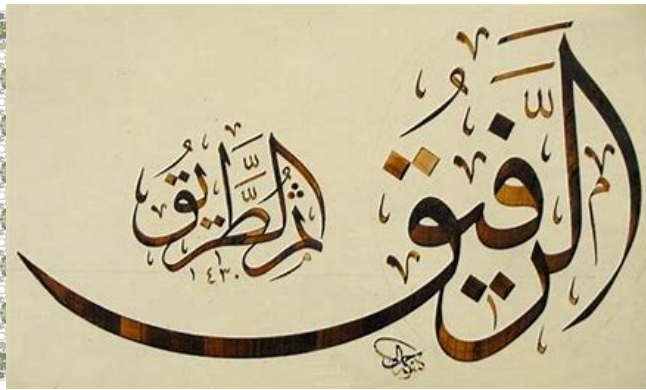 الرَّفيق
ثُمَّ الطَّريقُ
١٤٣٠